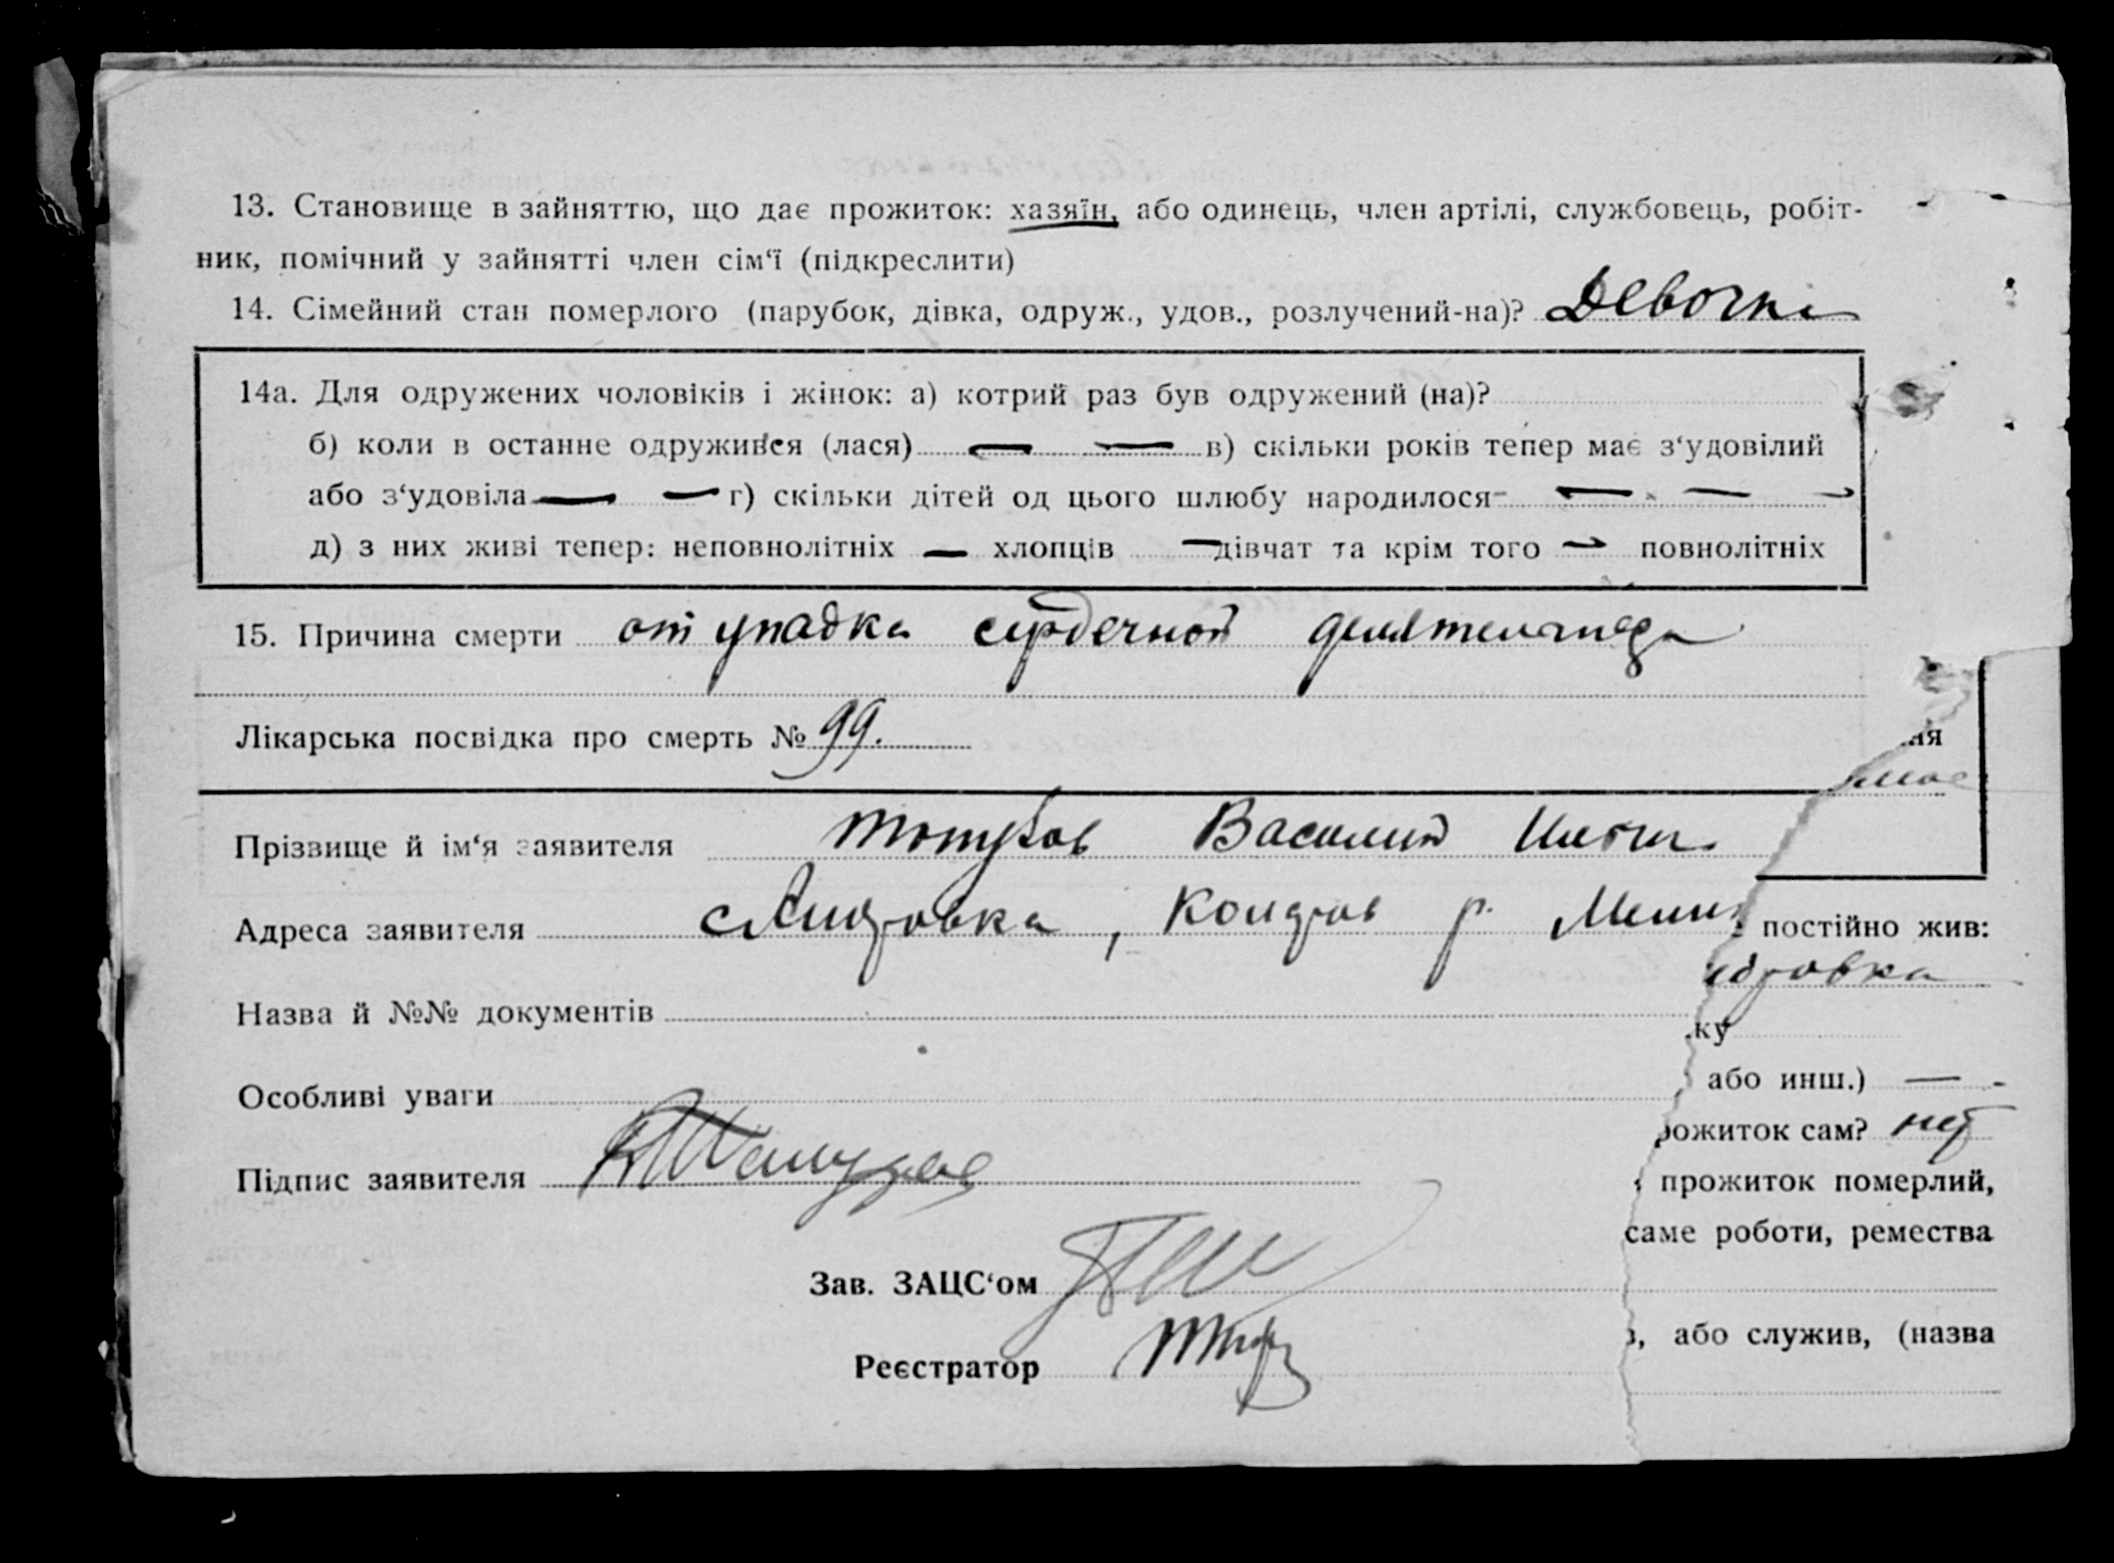 13. Становище в зайняттю, що дає прожиток: хазяїн, або одинець, член артілі, службовець, робіт-
ник, помічний у зайнятті член сім‘ї (підкреслити)
14. Сімейний стан померлого (парубок, дівка, одруж., удов., розлучений-на)? Девочка
14а. Для одружених чоловіків і жінок: а) котрий раз був одружений (на)?
б) коли в останне одружився (лася) — — в) скільки років тепер має з‘удовілий
або з‘удовіла — — г) скільки дітей од цього шлюбу народилося — — —
д) з них живі тепер: неповнолітніх — хлопців — дівчат та крім того — повнолітніх
15. Причина смерти от упадка сердечной деятельности
Лікарська посвідка про смерть № 99.
ня
Прізвище й ім‘я заявителя Василий
Адреса заявителя р.
постійно жив:
Назва й №№ документів
ку
Особливі уваги
або инш.) —
рожиток сам? нет
Підпис заявителя
прожиток померлий,
саме роботи, ремества
Зав. ЗАЦС‘ом
в, або служив, (назва
Реєстратор